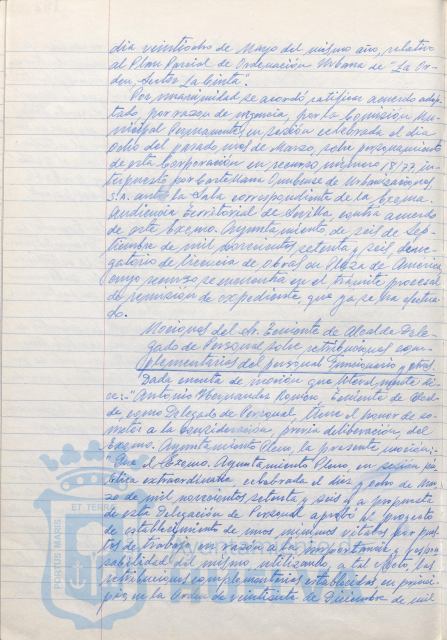 dia veintiocho de Mayo del mismo año, relativo
al Plan Parcial de Ordenación Urbana de "La Or-
den, Sector La Cinta".
Por unanimidad se acordó ratificar acuerdo adop-
tado, por razon de urgencia, por la Comisión Mu-
nicipal Permanente, en sesión celebrada el dia
ocho del pasado mes de Marzo, sobre personamiento
de esta Corporación en recurso número 18/77, in-
terpuesto por Castellana Onubense de Urbanizaciones
S.A. ante la Sala correspondiente de la Excma.
Audiencia Territorial de Sevilla, contra acuerdo
de este Excmo. Ayuntamiento de seis de Sep-
tiembre de mil novecientos setenta y seis, dene-
gatorio de licencia de obras en Plaza de América,
cuyo recurso se encuentra en el trámite procesal
de remisión de expediente, que ya se ha efectua-
do.
Mociones del Sr. Teniente de Alcalde Dele-
gado de Personal sobre retribuciones com-
plementarias del personal funcionario y otras.
Dada cuenta de moción que literalmente di-
ce: "Antonio Hernandez Ramón, Teniente de Alcal-
de, como Delegado de Personal, tiene el honor de so-
meter a la consideración, previa deliberación, del
Excmo. Ayuntamiento Pleno, la presente moción:
"Que el Excmo. Ayuntamiento Pleno, en sesión pú-
blica extraordinaria celebrada el diez y ocho de Mar-
zo de mil novecientos setenta y seis y a propuesta
de esta Delegación de Personal aprobó el proyecto
de establecimiento de unos mínimos vitales por pues-
tos de trabajo en razón a la importancia y respon-
sabilidad del mismo utilizando, a tal efecto, las
retribuciones complementarias establecidas en princi-
pio en la Orden de veintisiete de Diciembre de mil
PORTUS MARIS ET TERRAE